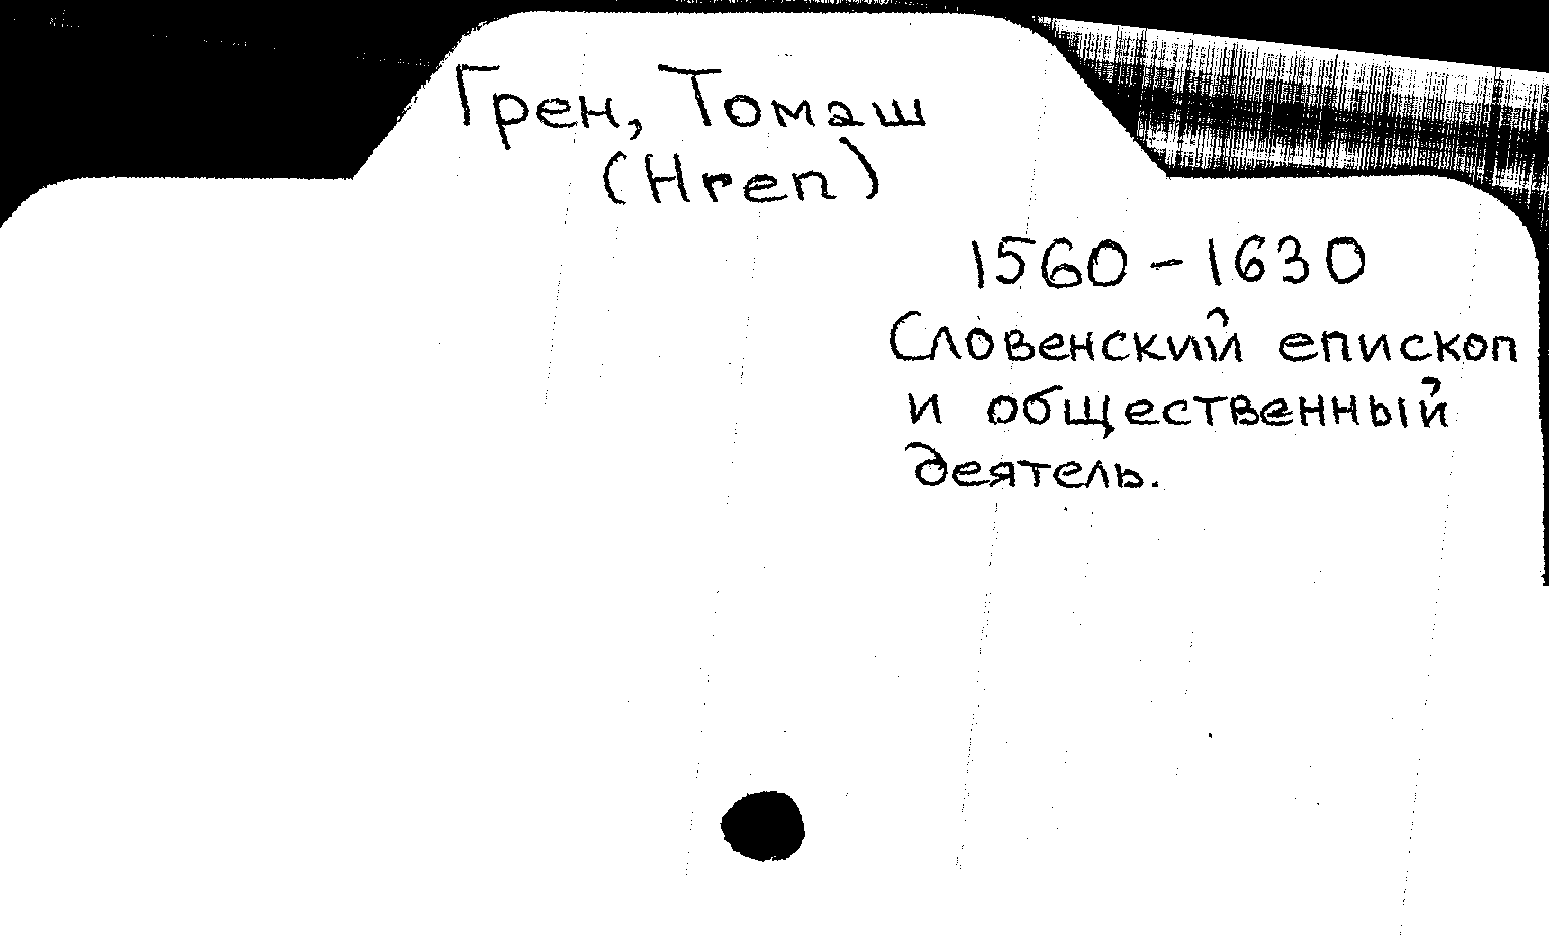 Грен, Томаш
(Hren)
1560-1630
Словенский епископ
и общественный
деятель.